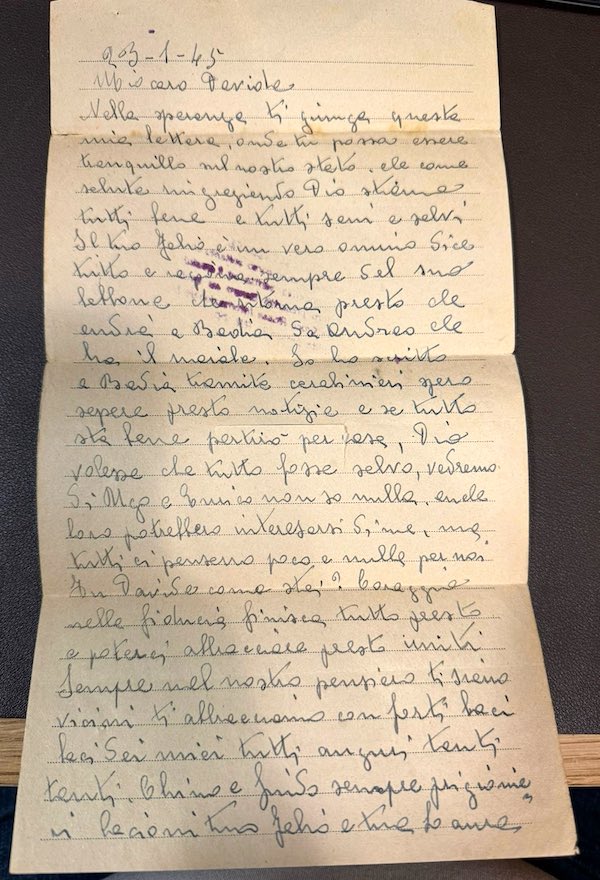 23-1-45
Mio caro Davide
Nella speranza ti giunga questa
mia lettera, onde tu possa essere
tranquillo sul nostro stato, che come
salute ringraziando Dio stiamo
tutti bene e tutti sani e salvi
Il tuo è un vero ometto dice
tutto e sempre del suo
lettone che ritorna presto che
andrà a Badia da Andrea che
ha il maiale. Io ho scritto
a Badia tramite carabinieri spero
sapere presto notizie e se tutto
sta bene partirò per casa, Dio
volesse che tutto fosse salvo, vedremo
Di Ugo e Enrico non so nulla, anche
loro potrebbero interessarsi di me, ma
tutti ci pensano poco e nulla per noi
Tu Davide come stai? Coraggio
nella fiducia finisca tutto presto
e poterci abbracciare presto uniti
Sempre nel nostro pensiero ti siamo
vicini ti abbracciamo con forti baci
baci dei miei tutti auguri tanti
tanti. e Guido sempre prigionie
ri bacioni tuo e tua